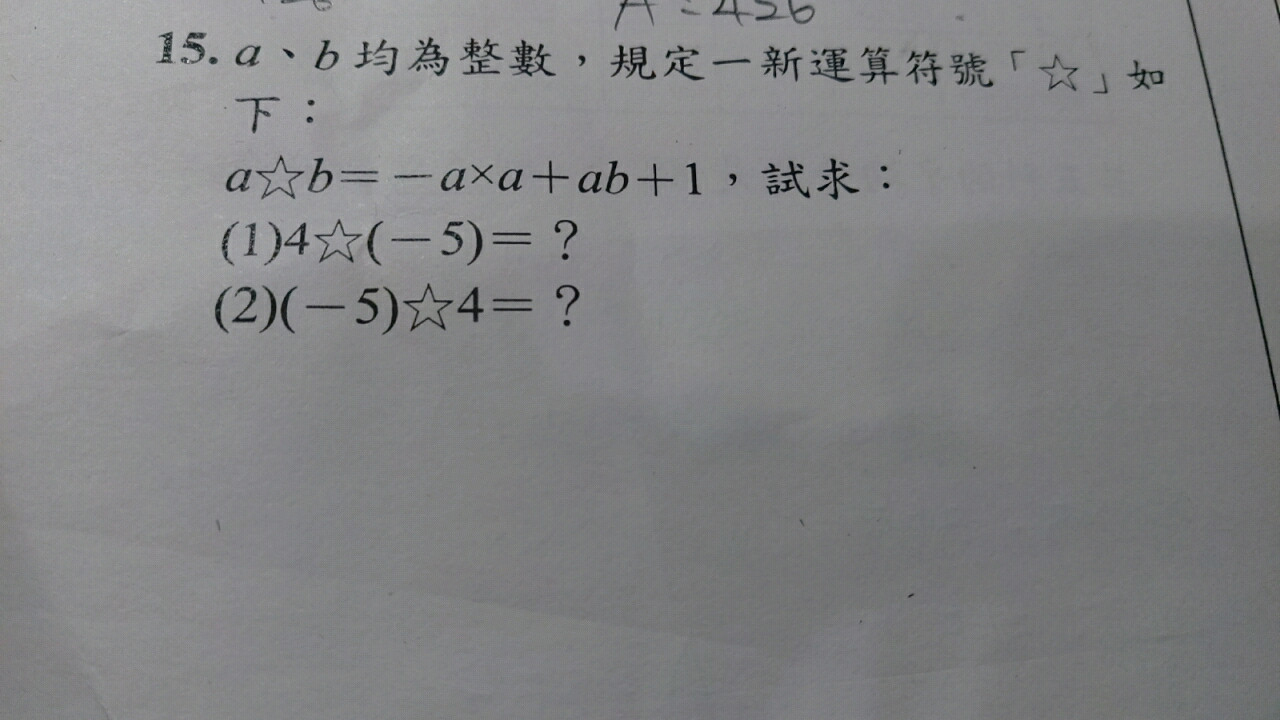 A = 426
15. a、b 均為整數，規定一新運算符號「☆」如
下：
a☆b=－a×a＋ab＋1，試求：
(1)4☆(－5)=？
(2)(－5)☆4=？